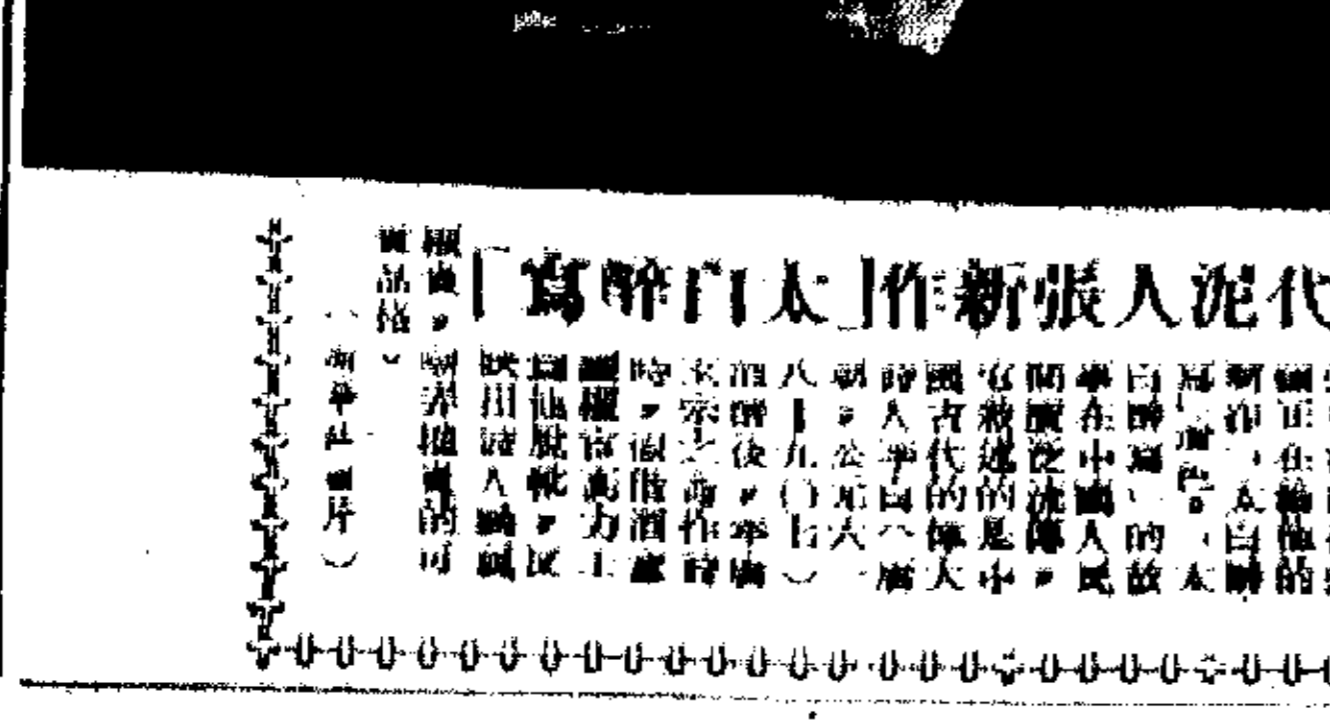 代泥人張新作「太白醉寫」
正在給他的
新作「太白醉
寫」着色。「太
白醉寫」的故
事在中國人民
間廣泛流傳,
它敘述的是中
國古代的偉大
詩人李白(唐
朝,公元六一
八—九〇七)
酒醉後,奉唐
玄宗之命作詩
時,假借酒意
權宦高力士
爲他脫靴,反
映出詩人鄙視
權貴,嘲弄權貴的可
貴品格。
(新華社圖片)